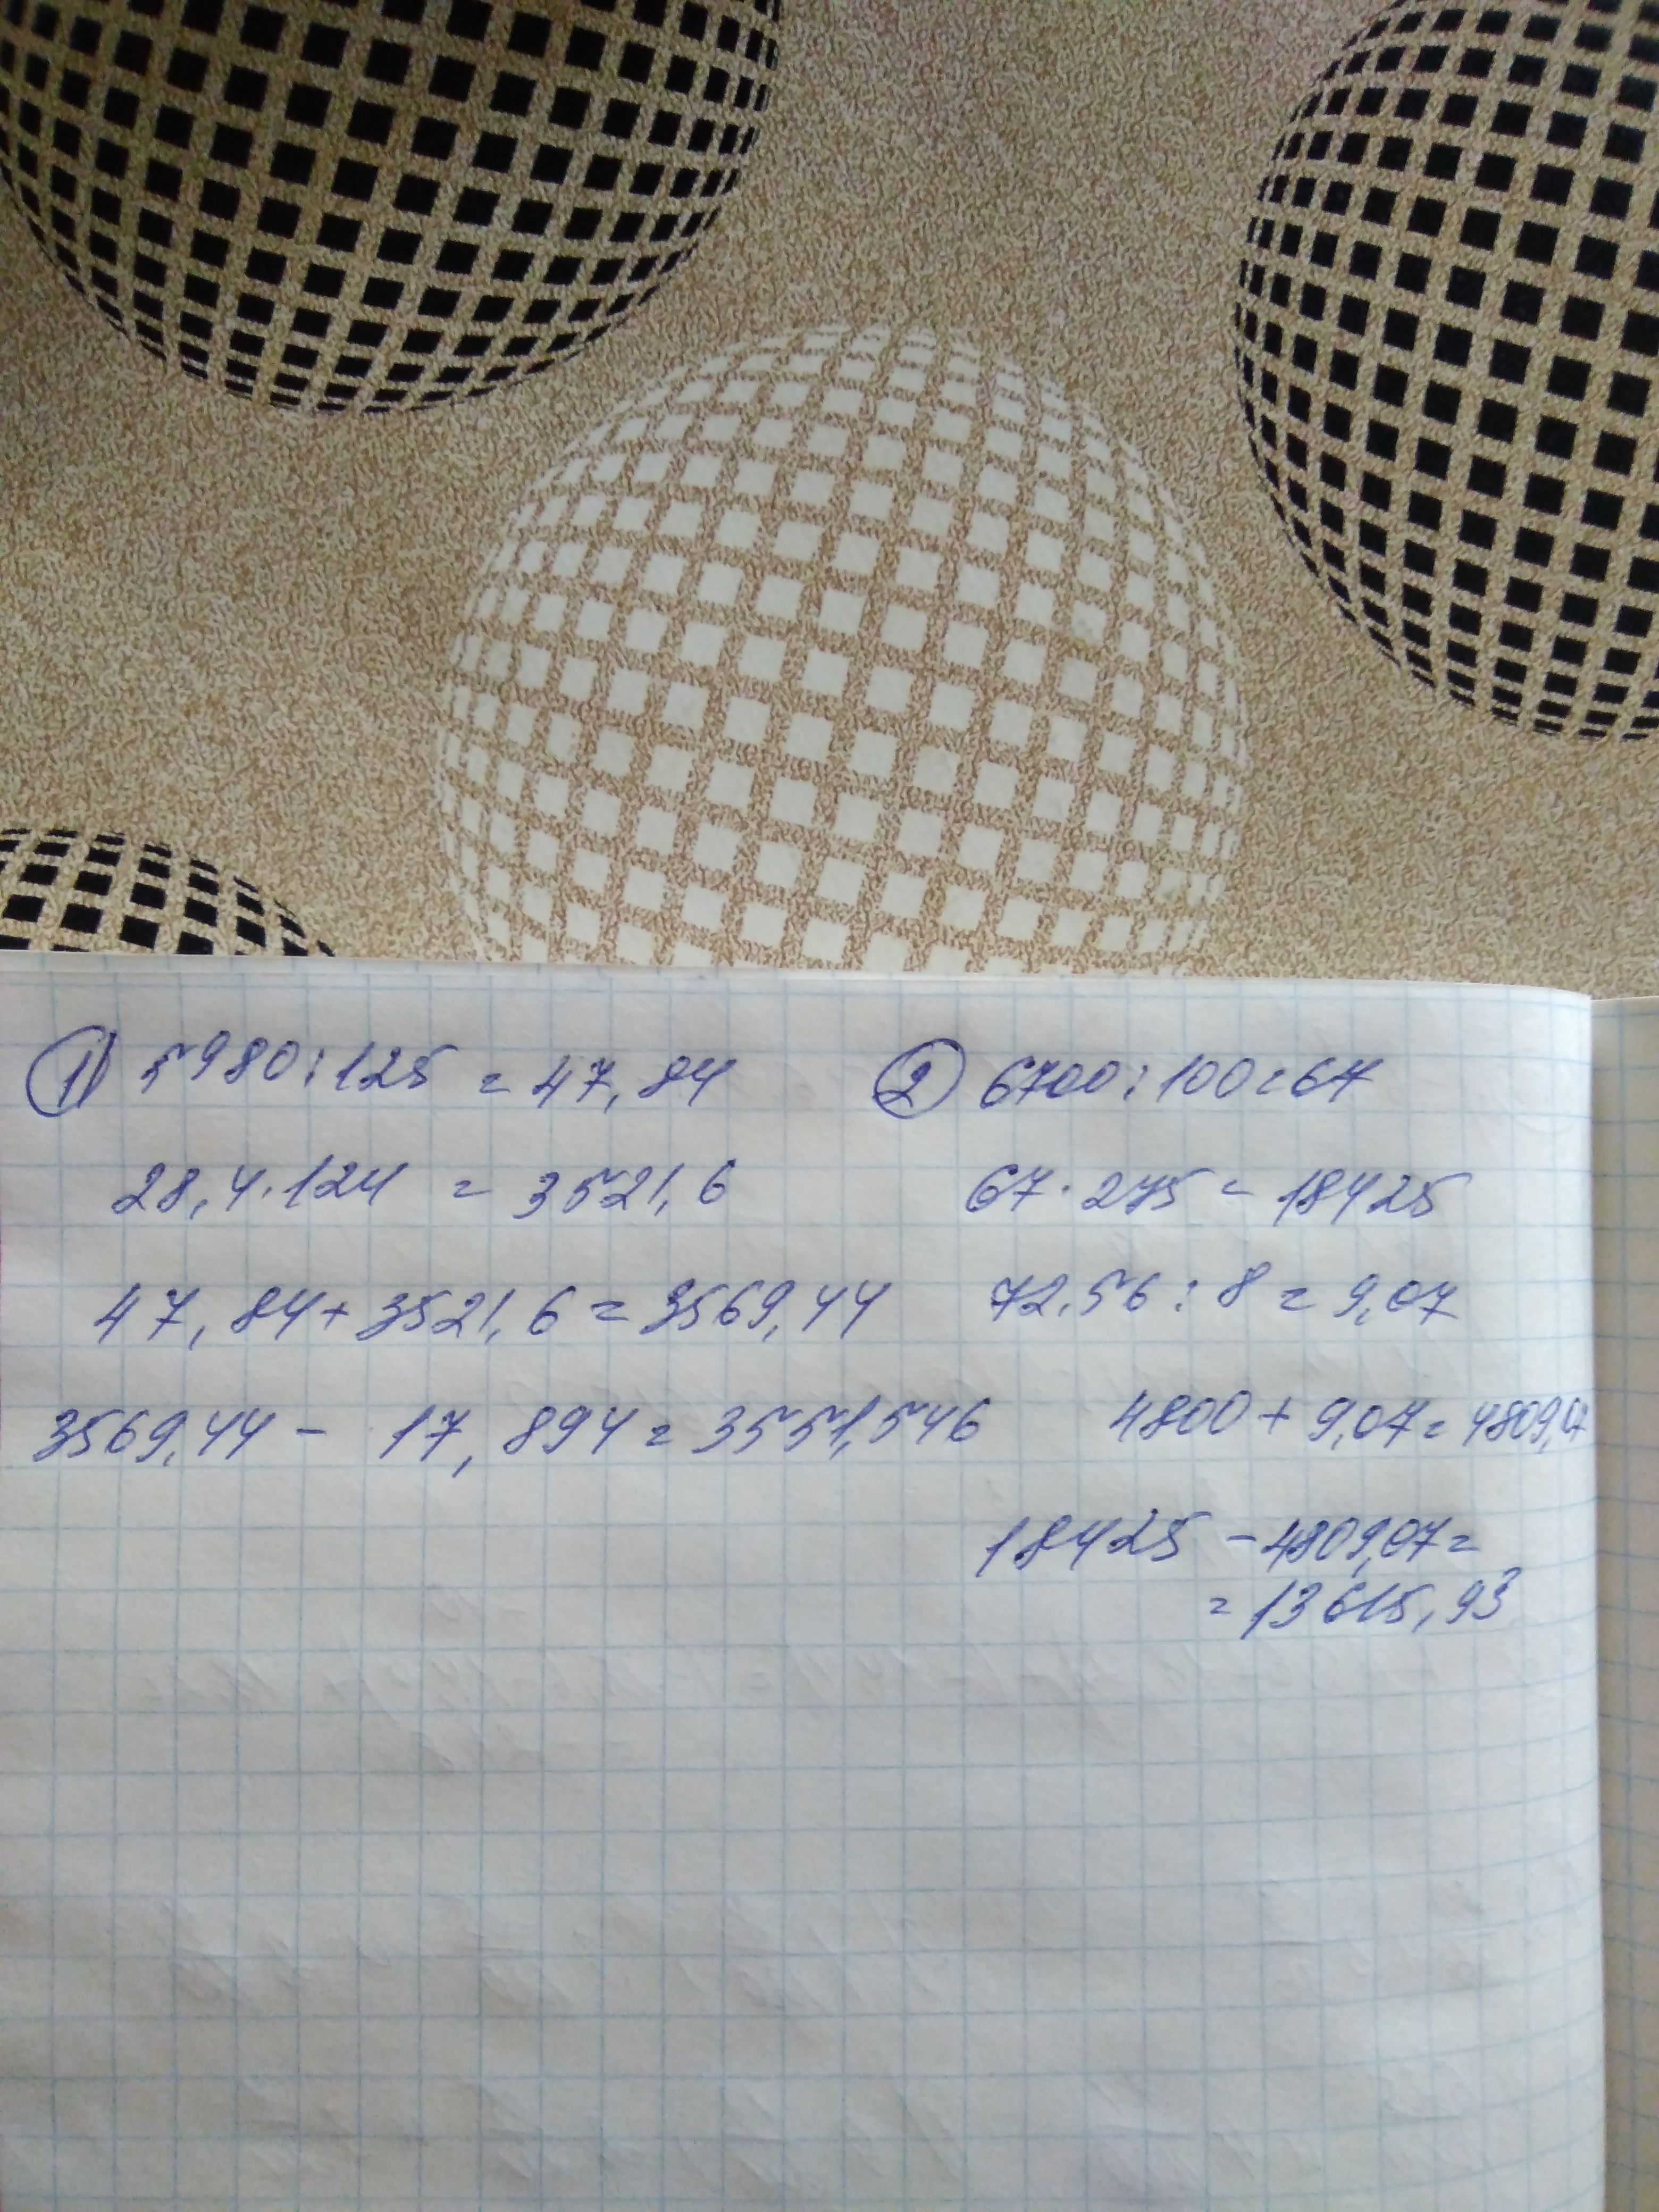 1) 5980:125 = 47,84
28,4·124 = 3521,6
47,84+3521,6=3569,44
3569,44 - 17,894=3551,546
2 6700:100=67
67·275 = 18425
72,56:8=9,07
4800+9,07=4809,07
18425 -4809,07=
=13615,93